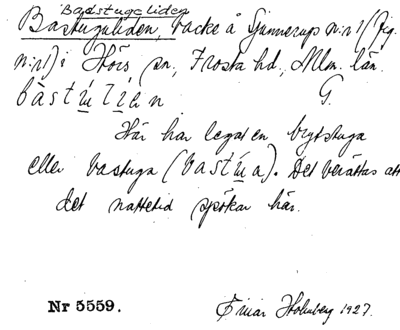 Badstugeliden
Bastuguliden, backe å Gunnarup n:r 1 (fig.
n:r 1) i Hörs sn, Frosta hd, Mlm. län.
bàstúlíen G.
Här har legat en brytstuga
eller bastuga (bastúa). Det berättas att
det nattetid spökar här.
Nr 5559. Einar Holmberg 1927.